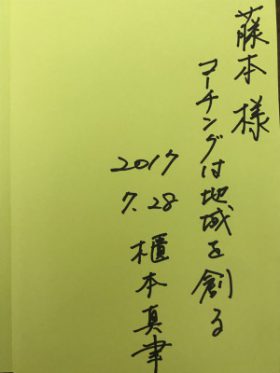 藤本様
コーチングは地域を創る
2017
7.28
櫃本真聿